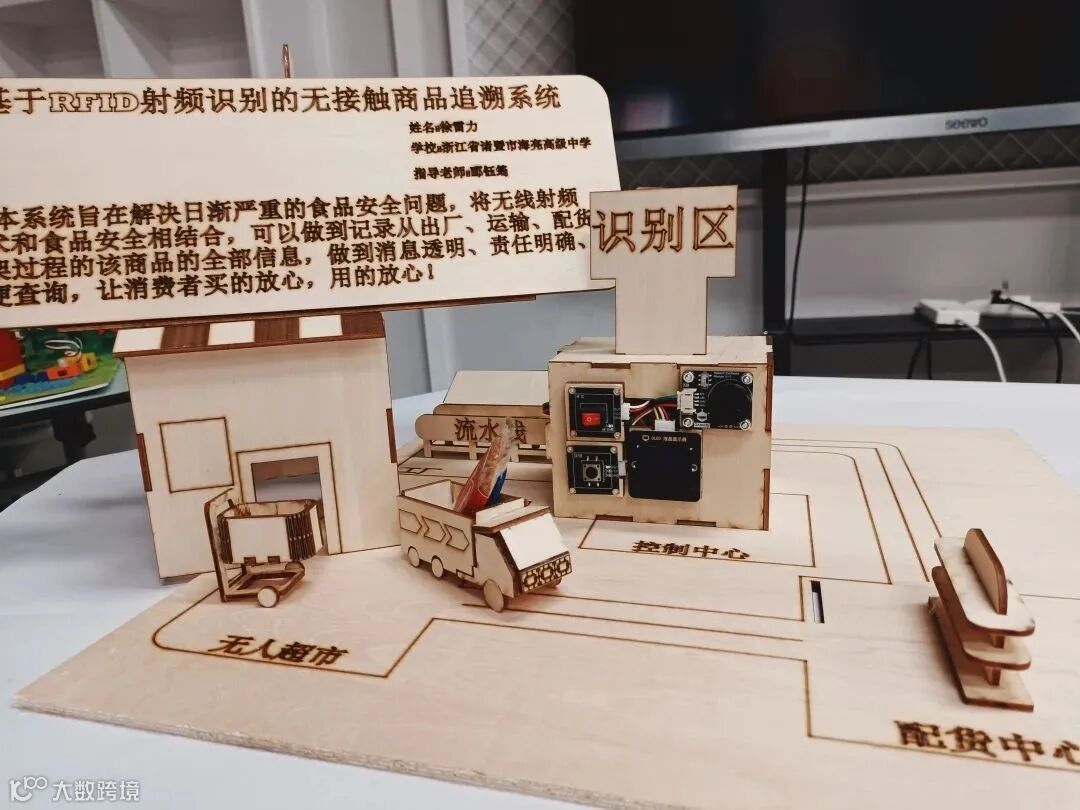 基于RFID射频识别的无接触商品追溯系统
姓名:徐雷力
学校:浙江省诸暨市海亮高级中学
指导老师:郦钰
本系统旨在解决日渐严重的食品安全问题，将无线射频
和食品安全相结合，可以做到记录从出厂、运输、配货
过程的该商品的全部信息，做到消息透明、责任明确、
查询，让消费者买的放心，用的放心！
识别区
seewo
流水线
OLED 液晶显示屏
控制中心
无人超市
配货中心
大数跨境